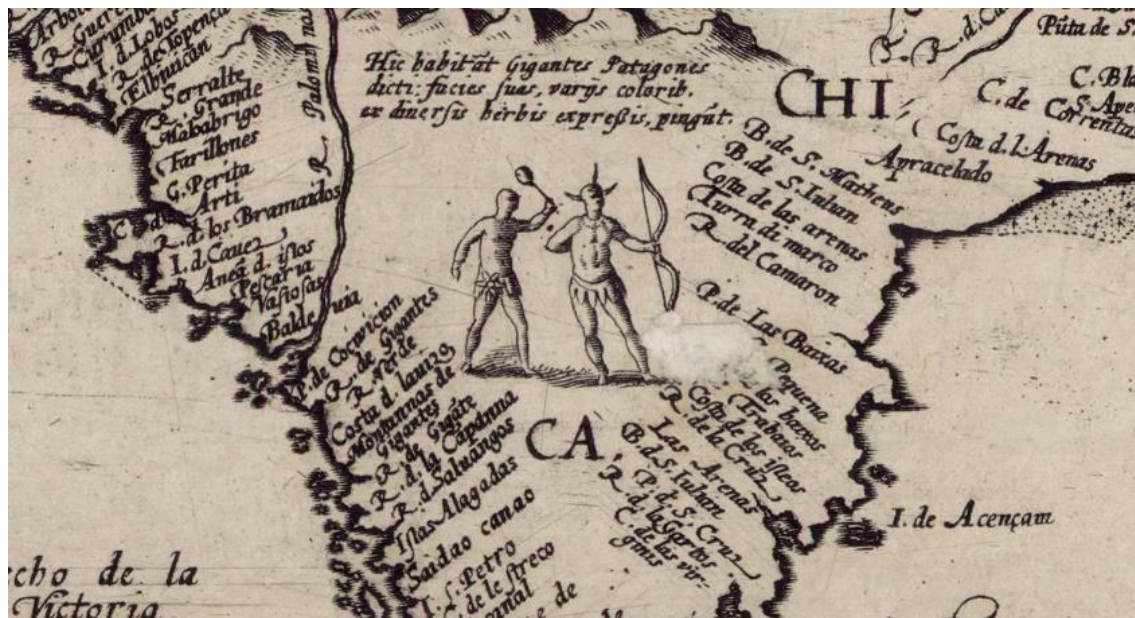 R. Guere
Curumba
I. d. Lobos
R. de Topença
Elbuican
Serralte
R. Grande
Malabrigo
Farillones
G. Perita
Arti
R. d. los Bramaidos
I. d. Cauez
Anea d. islos
Pescaria
Vasiosas
Balde uia
R. Palominos
Hic habitāt Gigantes Patagones
dicti: facies suas, varijs colorib.
ex diuersis herbis expreßis, pingūt.
CHI
CA,
Pūta de S.
C. Bla
S. Ape
C. de Correntas
Costa d. l. Arenas
Apracelado
B. de S. Matheus
B. de S. Iulian
Costa de las arenas
Tierra de marco
R. del Camaron
P. de Las Baixas
Pequena
las baixos
Trabaios
Costa de los isleos
R. de la Cruz
Las Arenas
B. d. S. Iulian
P. d. S. Cruz
R. d. la Gartos
C. de las vir-
ginis
I. de Acençam
P. de Corwicion
R. de Gigantes
R. Verde
Costa d.
Montannas de
Gigantes
R. de Gigāte
R. d. la Capanna
R. d. Saluangos
Islas Alagadas
Saidao canao
I. S. Petro
C. de le streco
canal
de
echo de la
Victoria